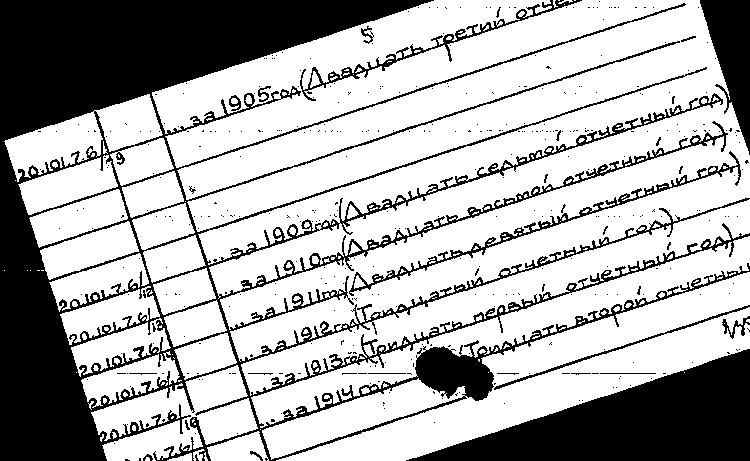 5
20.101.7.6/ ... за 1905 год (Двадцать третий
20.101.7.6/12 ... за 1909 год (Двадцать седьмой отчетный год).
20.101.7.6/13 ... за 1910 год (Двадцать восьмой отчетный год).
20.101.7.6/14 ... за 1911 год (Двадцать девятый отчетный год).
20.101.7.6/15 ... за 1912 год (Тридцатый отчетный год).
20.101.7.6/16 ... за 1913 год (Тридцать первый отчетный год).
20.101.7.6/17 ... за 1914 год (Тридцать второй